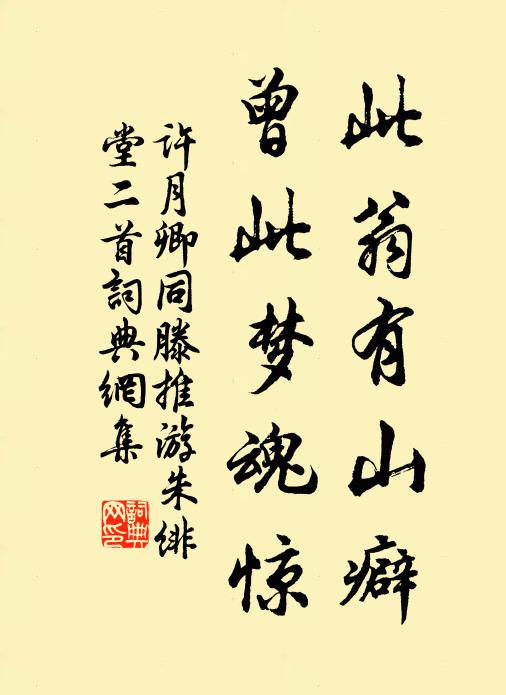 此翁有山癖
曾此梦魂惊
许月卿同滕推游朱绯
堂二首詞典網集
詞典
网印